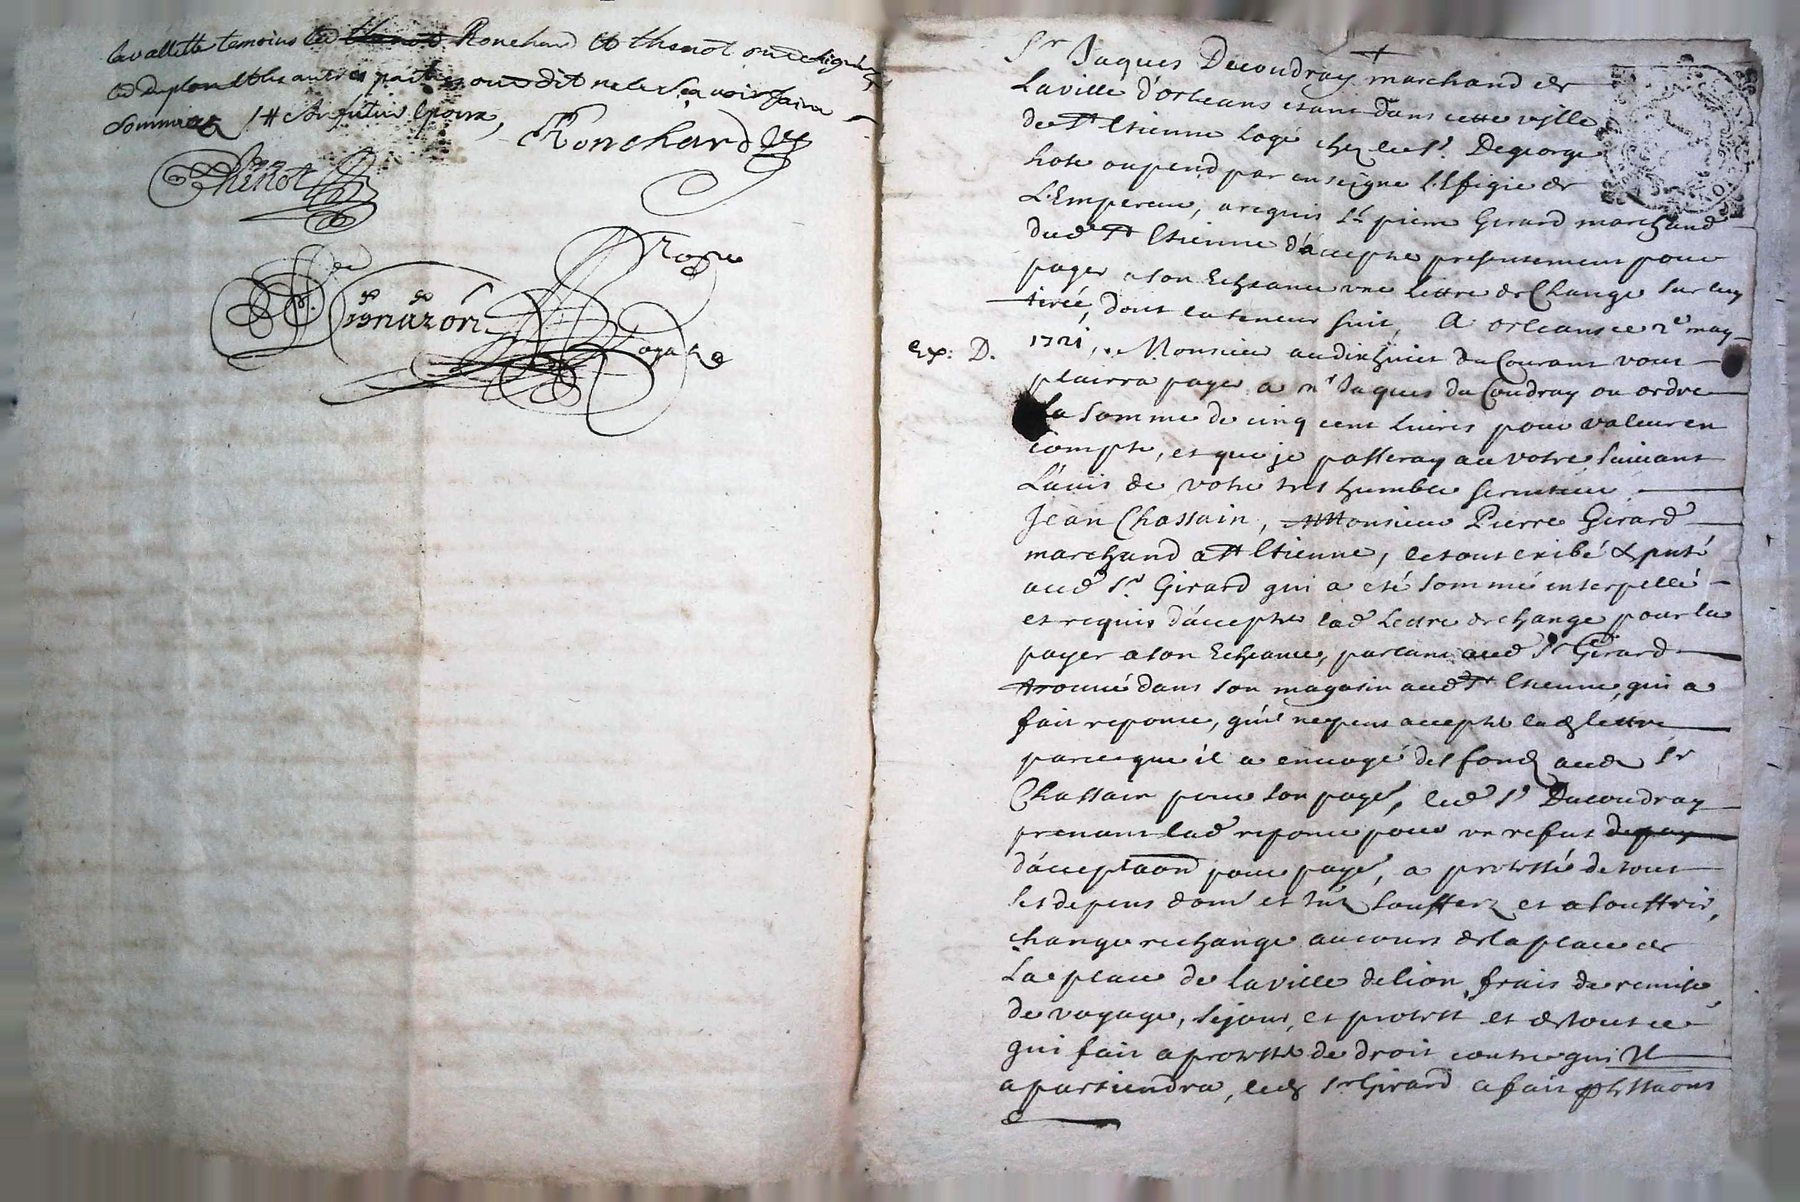 Lavallette temoins led Ronchard et thenot ont signé
ce deplond et les autres parties ont dit ne le sçavoir faire
sommués / # Ar futur epoux,
Ronchard
Thenot
Roze
pnazon
Sr Jaques Ducoudray marchand de
Laville d'orleans etant dans cette ville
de St Etienne logé chez le Sr. Degeorge
hote ou pend par enseigne l'Efigie de
L'Empereur, a requis Sr pierre Girard marchand
dud St Etienne d'accepter presentement pour
payer a son Echeance une lettre de Change sur luy
tirée, dont la teneur suit, A orleans ce 2e may
Ex: D. 1721, Monsieur au dix huict du Courant vous
plairra payer a mr Jaques du Coudray ou ordre
La somme de cinq cent livres pour valleur en
compte, et que je passeray au votre suivant
L'avis de votre tres humble serviteur
Jean Chassain, Monsieur Pierre Girard
marchand a St Etienne, le tout exibé & pnté
aud Sr. Girard qui a eté sommé interpellé
et requis d'accepter lad Lettre de change pour la
payer a son Echeance, parlant aud Sr Girard
trouvé dans son magasin aud St Etienne, qui a
fait reponce, qu'il ne peut accepter lad lettre
parce que il a envoyé des fond aud Sr
Chassain pour son payé, led Sr Ducoudray
prenant lad reponce pour un refus de pay
d'acceptaon pour payé, a protesté de tous
ses depens dom et int souffert et a souffrir,
change rechange au cours de la place de
La place de la ville de lion, frais de remise
de voyage, sejour, et protest et de tout ce
qui fait a protester de droit contre qui Il
apartiendra, led Sr Girard a fait pltaons